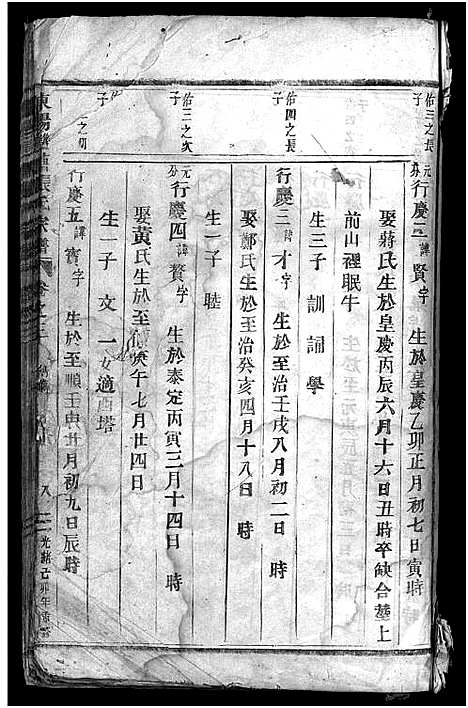 佑三之長子
元分行慶二諱賢字 生於皇慶乙卯正月初七日寅時
娶蔣氏生於皇慶丙辰六月十六日丑時卒缺合塟上
前山裡眠牛
生三子 訓 誦 學
佑四之長子
行慶三諱才字 生於至治壬戌八月初二日 時
娶鄭氏生於至治癸亥四月十八日 時
生一子 睦
佑三之次子
元分行慶四諱贅字 生於泰定丙寅三月十四日 時
娶黃氏生於至順庚午七月廿四日
生一子 文 一女適 塔
之初子
行慶五諱寳字 生於至順壬申廿月初九日辰時
東陽 張氏宗譜 卷之三 八 光緒己卯年重